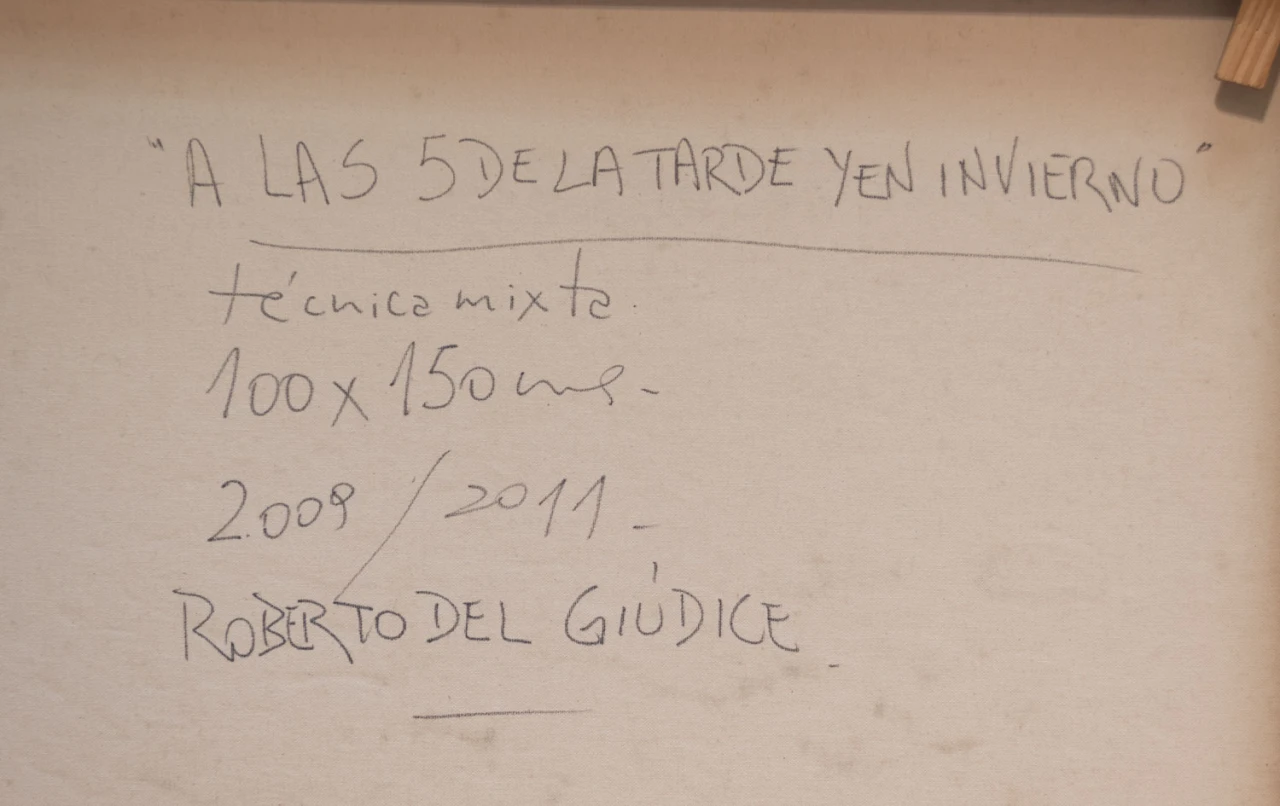 "A LAS 5 DE LA TARDE Y EN INVIERNO"
técnica mixta.
100 x 150 cms.-
2.009 / 2011 -
ROBERTO DEL GIÚDICE.